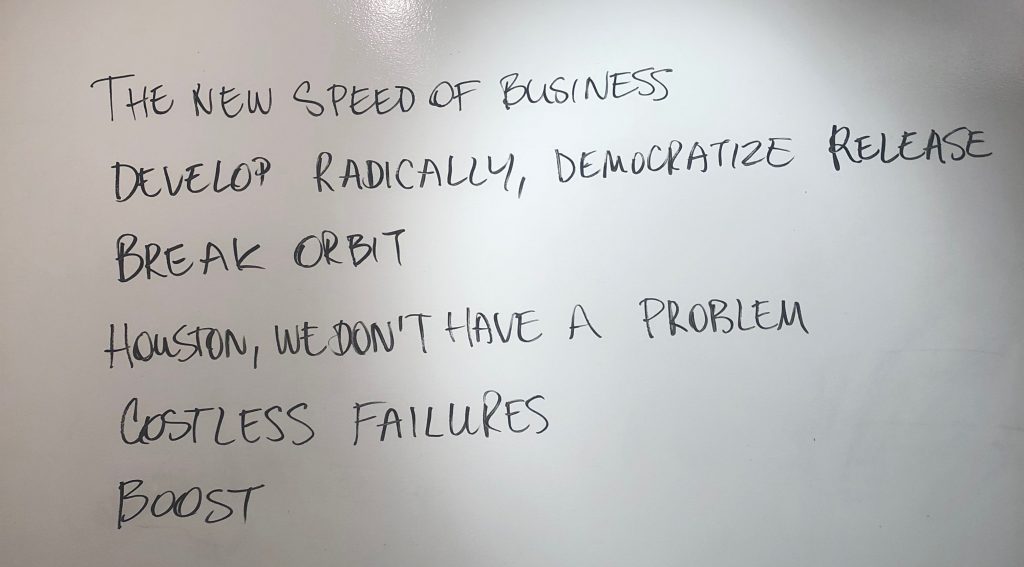 THE NEW SPEED OF BUSINESS
DEVELOP RADICALLY, DEMOCRATIZE RELEASE
BREAK ORBIT
HOUSTON, WE DON'T HAVE A PROBLEM
COSTLESS FAILURES
BOOST